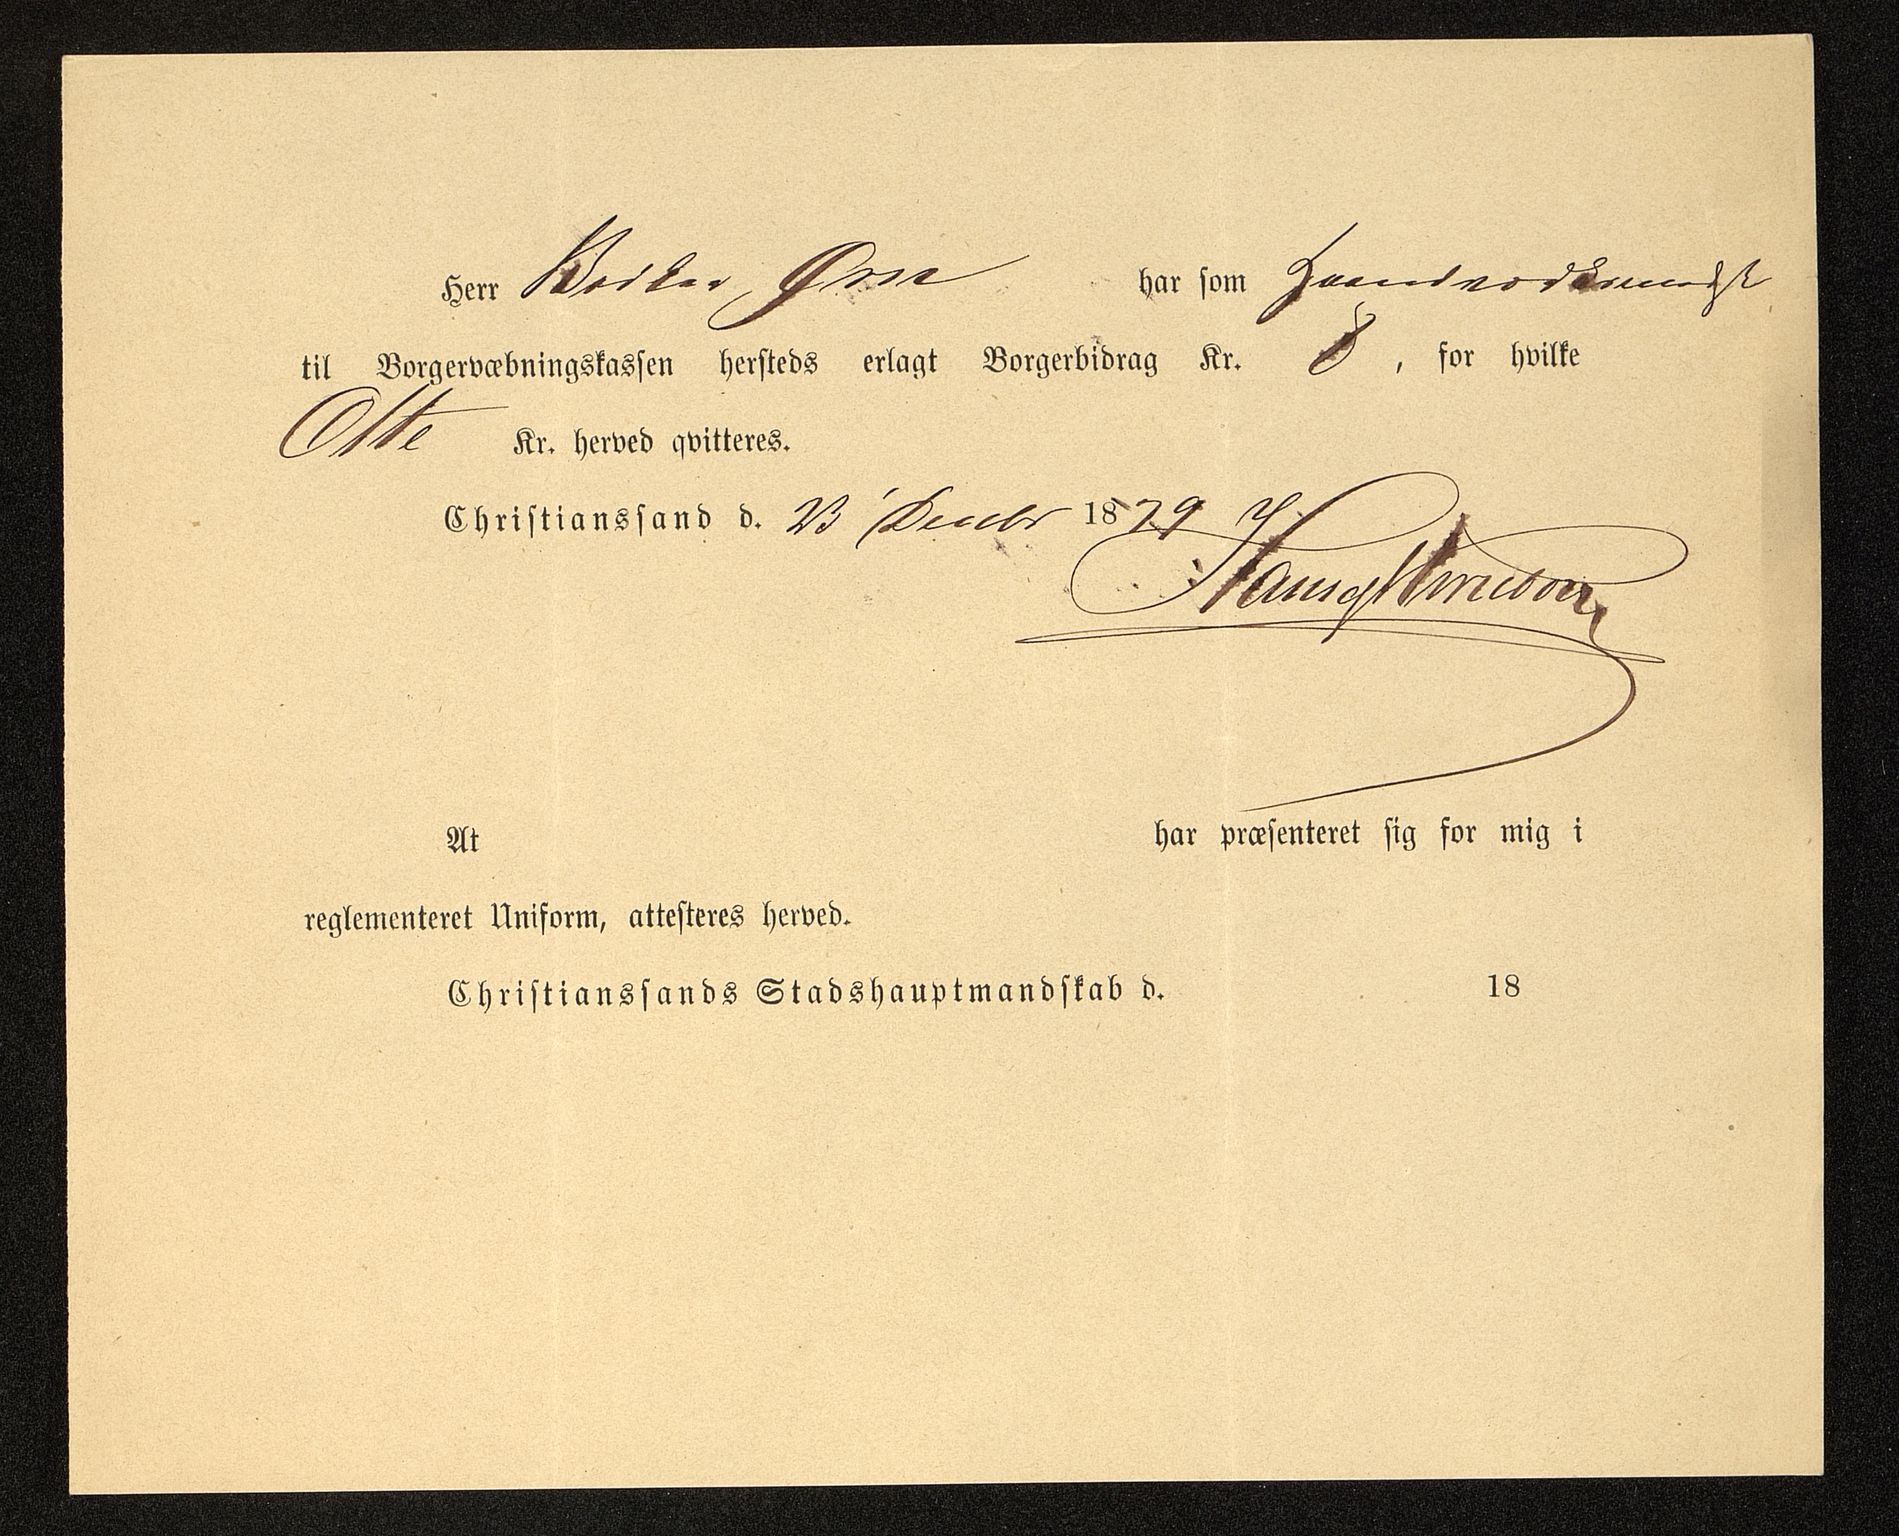 Herr har som
til Borgervæbningskassen hersteds erlagt Borgerbidrag Kr. 8, for hvilke
Otte Kr. herved qvitteres.
Christianssand d. 23' Decbr 1879
At har præsenteret sig for mig i
reglementeret Uniform, attesteres herved.
Christianssands Stadshauptmandskab d. 18